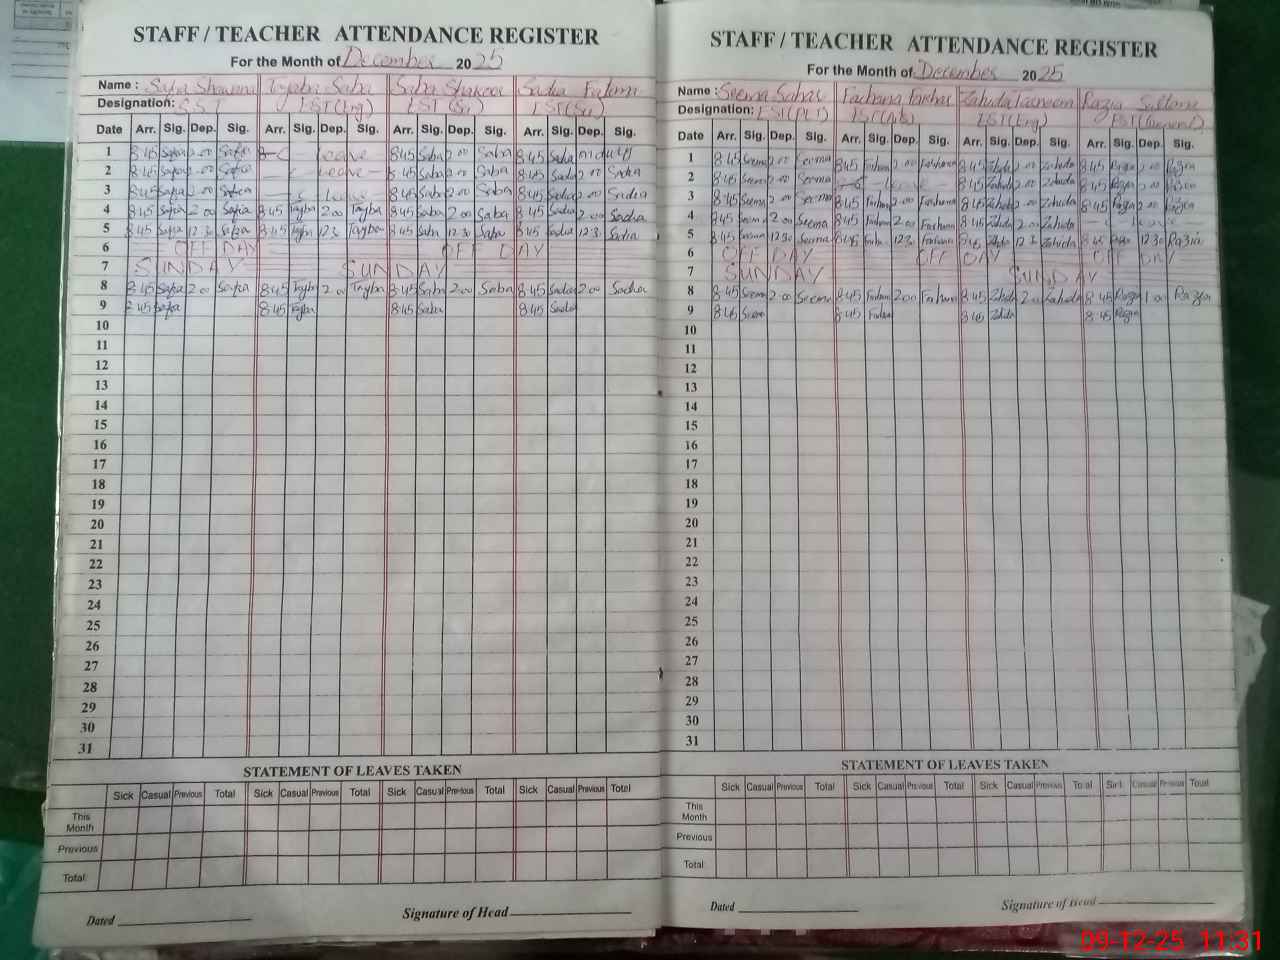 STAFF / TEACHER ATTENDANCE REGISTER
For the Month of December 2025
Name : Safia Shaheena Tayba Saba Saba Shakoor Sadia Fatima
Designation: S.S.T EST(Eng) EST(Sci) EST(Sci)
Date Arr. Sig. Dep. Sig. Arr. Sig. Dep. Sig. Arr. Sig. Dep. Sig. Arr. Sig. Dep. Sig.
1 8:45 Safia 2:00 Safia Leave 8:45 Saba 2:00 Saba 8:45 Sadia
2 8:45 Safia 2:00 Safia Leave 8:45 Saba 2:00 Saba 8:45 Sadia 2:00 Sadia
3 8:45 Safia 2:00 Safia Leave 8:45 Saba 2:00 Saba 8:45 Sadia 2:00 Sadia
4 8:45 Safia 2:00 Safia 8:45 Tayba 2:00 Tayba 8:45 Saba 2:00 Saba 8:45 Sadia 2:00 Sadia
5 8:45 Safia 12:30 Safia 8:45 Tayba 12:30 Tayba 8:45 Saba 12:30 Saba 8:45 Sadia 12:30 Sadia
6 OFF DAY OFF DAY
7 SUNDAY SUNDAY
8 8:45 Safia 2:00 Safia 8:45 Tayba 2:00 Tayba 8:45 Saba 2:00 Saba 8:45 Sadia 2:00 Sadia
9 8:45 Safia 8:45 Tayba 8:45 Saba 8:45 Sadia
10
11
12
13
14
15
16
17
18
19
20
21
22
23
24
25
26
27
28
29
30
31
STATEMENT OF LEAVES TAKEN
Sick Casual Previous Total Sick Casual Previous Total Sick Casual Previous Total Sick Casual Previous Total
This Month
Previous
Total:
Dated Signature of Head
STAFF / TEACHER ATTENDANCE REGISTER
For the Month of December 2025
Name : Seema Sahar Farhana Farhat Zahida Tasneem Razia Sultana
Designation: EST(Eng)
Date Arr. Sig. Dep. Sig. Arr. Sig. Dep. Sig. Arr. Sig. Dep. Sig. Arr. Sig. Dep. Sig.
1 8:45 Seema 2:00 Seema 8:45 Farhana 2:00 Farhana 8:45 Zahida 2:00 Zahida 8:45 Razia 2:00 Razia
2 8:45 Seema 2:00 Seema Leave 8:45 Zahida 2:00 Zahida 8:45 Razia 2:00 Razia
3 8:45 Seema 2:00 Seema 8:45 Farhana 2:00 Farhana 8:45 Zahida 2:00 Zahida 8:45 Razia 2:00 Razia
4 8:45 Seema 2:00 Seema 8:45 Farhana 2:00 Farhana 8:45 Zahida 2:00 Zahida Leave
5 8:45 Seema 12:30 Seema 8:45 12:30 Farhana 8:45 Zahida 12:30 Zahida 8:45 Razia 12:30 Razia
6 OFF DAY OFF DAY OFF DAY
7 SUNDAY SUNDAY
8 8:45 Seema 2:00 Seema 8:45 Farhana 2:00 Farhana 8:45 Zahida 2:00 Zahida 8:45 Razia 1:00 Razia
9 8:45 Seema 8:45 Farhana 8:45 Zahida 8:45 Razia
10
11
12
13
14
15
16
17
18
19
20
21
22
23
24
25
26
27
28
29
30
31
STATEMENT OF LEAVES TAKEN
Sick Casual Previous Total Sick Casual Previous Total Sick Casual Previous Total Sick Casual Previous Total
This Month
Previous
Total:
Dated Signature of Head
09-12-25 11:31